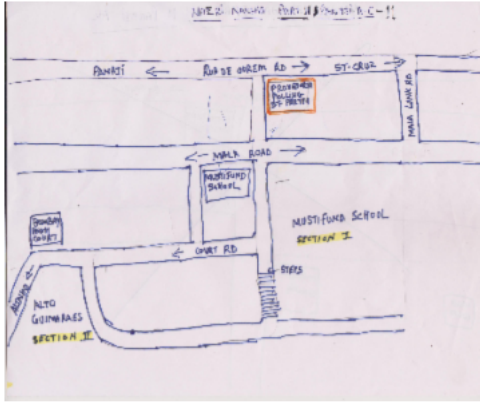 PANAJI ← RUA DE OUREM RD → ST-CRUZ →
POLLING
MALA LINK RD
← MALA ROAD →
MUSTIFUND
SCHOOL
MUSTIFUND SCHOOL
SECTION I
COURT
← COURT RD
STEPS
ALTO
GUIMARAES
SECTION II